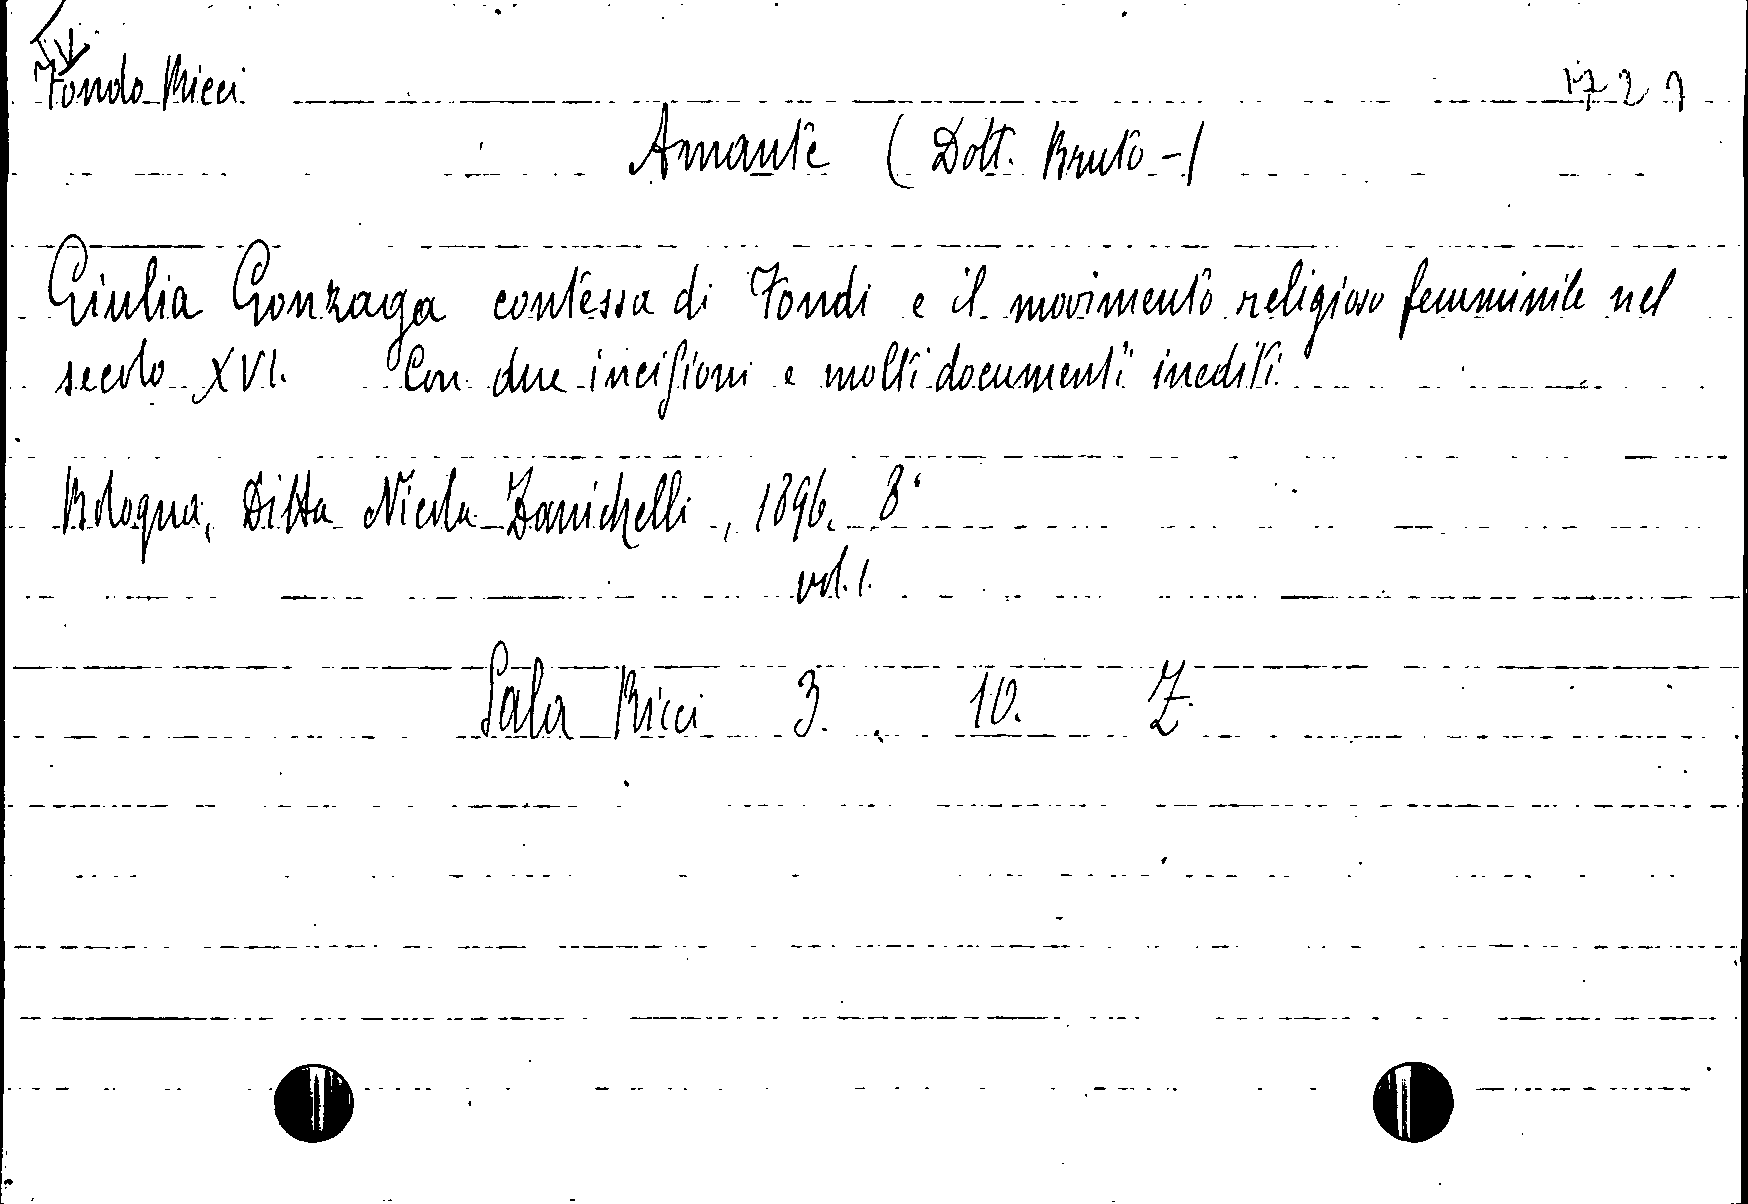 Fondo Ricci 1721
Amante (Dott. Bruto -)
Giulia Gonzaga contessa di Fondi e il movimento religioso femminile nel
secolo XVI. Con due incisioni e molti documenti inediti
Bologna, Ditta Nicola Zanichelli, 1896. 8°
vol. 1.
Sala Ricci 3. 10. Z